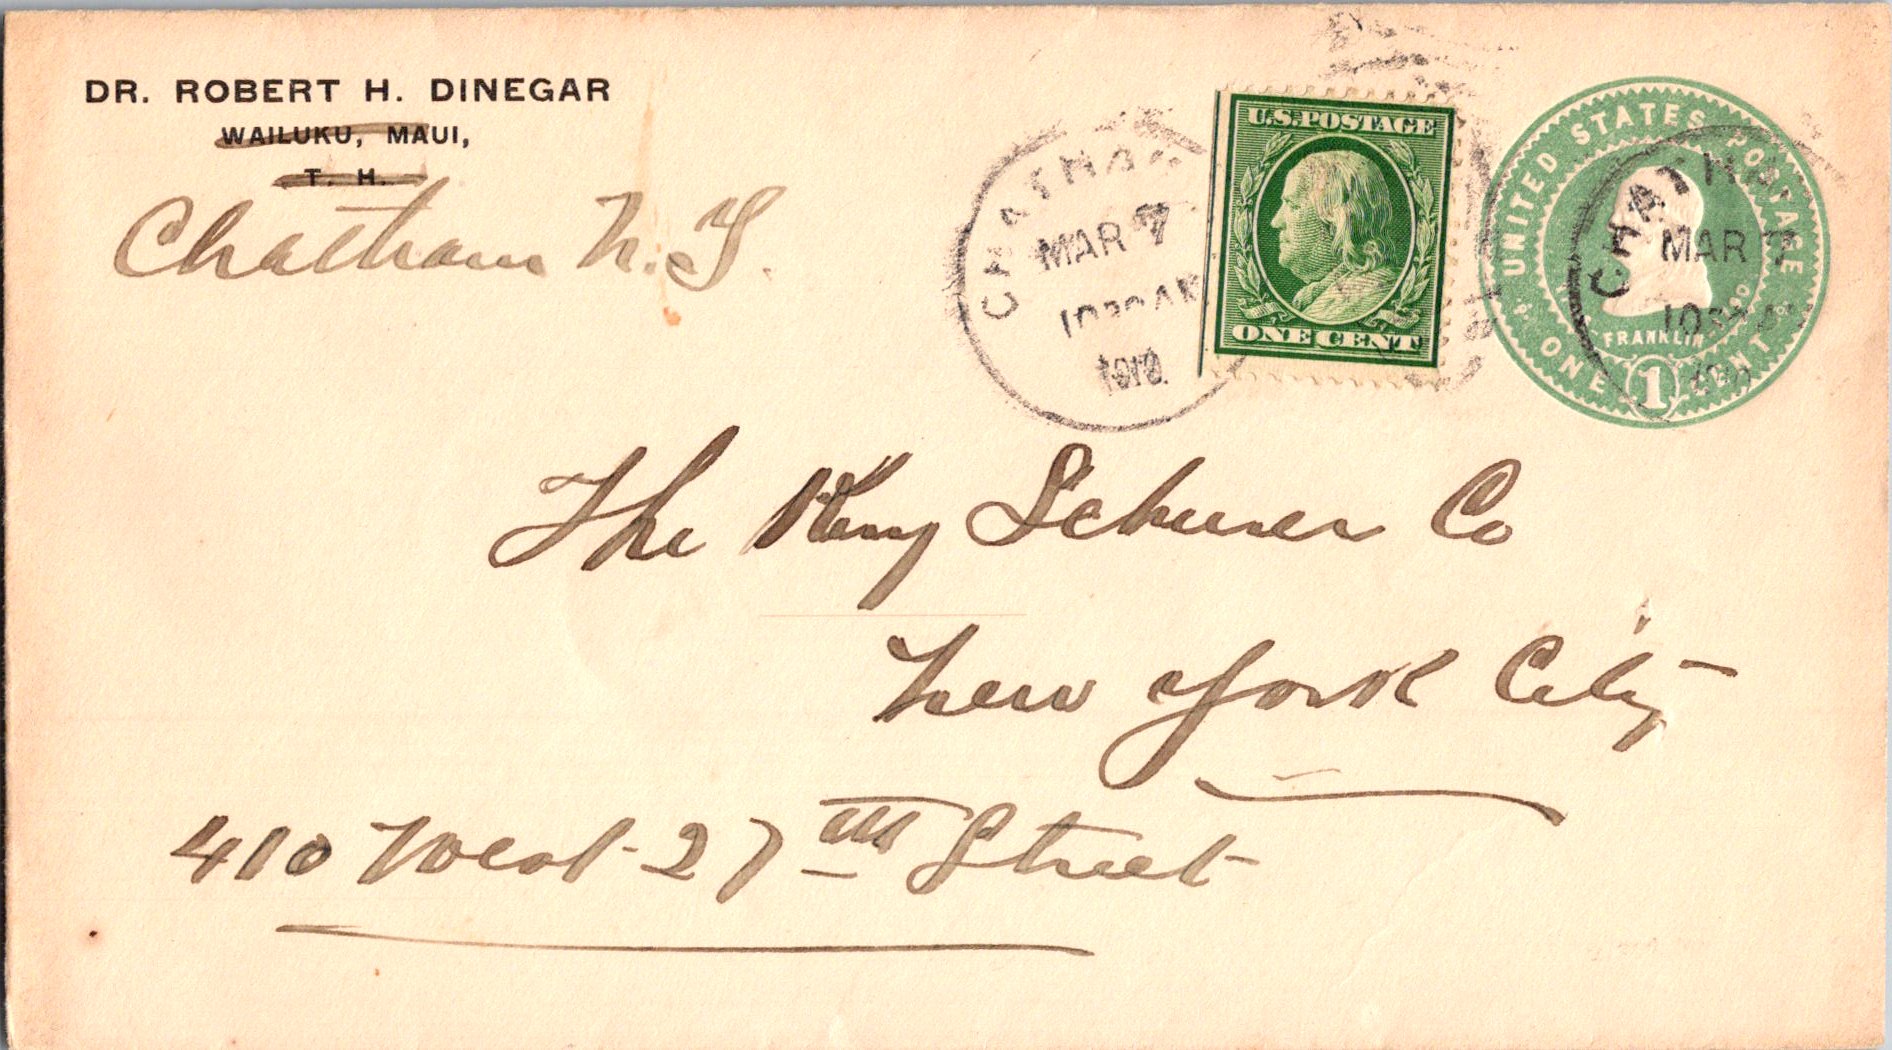 DR. ROBERT H. DINEGAR
WAILUKU, MAUI,
T. H.
Chatham N.Y.
CHATHAM
MAR 7
1030AM
U.S.POSTAGE
ONE CENT
UNITED STATES POSTAGE
FRANKLIN
ONE CENT
1
CHATHAM
MAR 7
1030AM
The Scheurer Co
New York City
410 West 27th Street